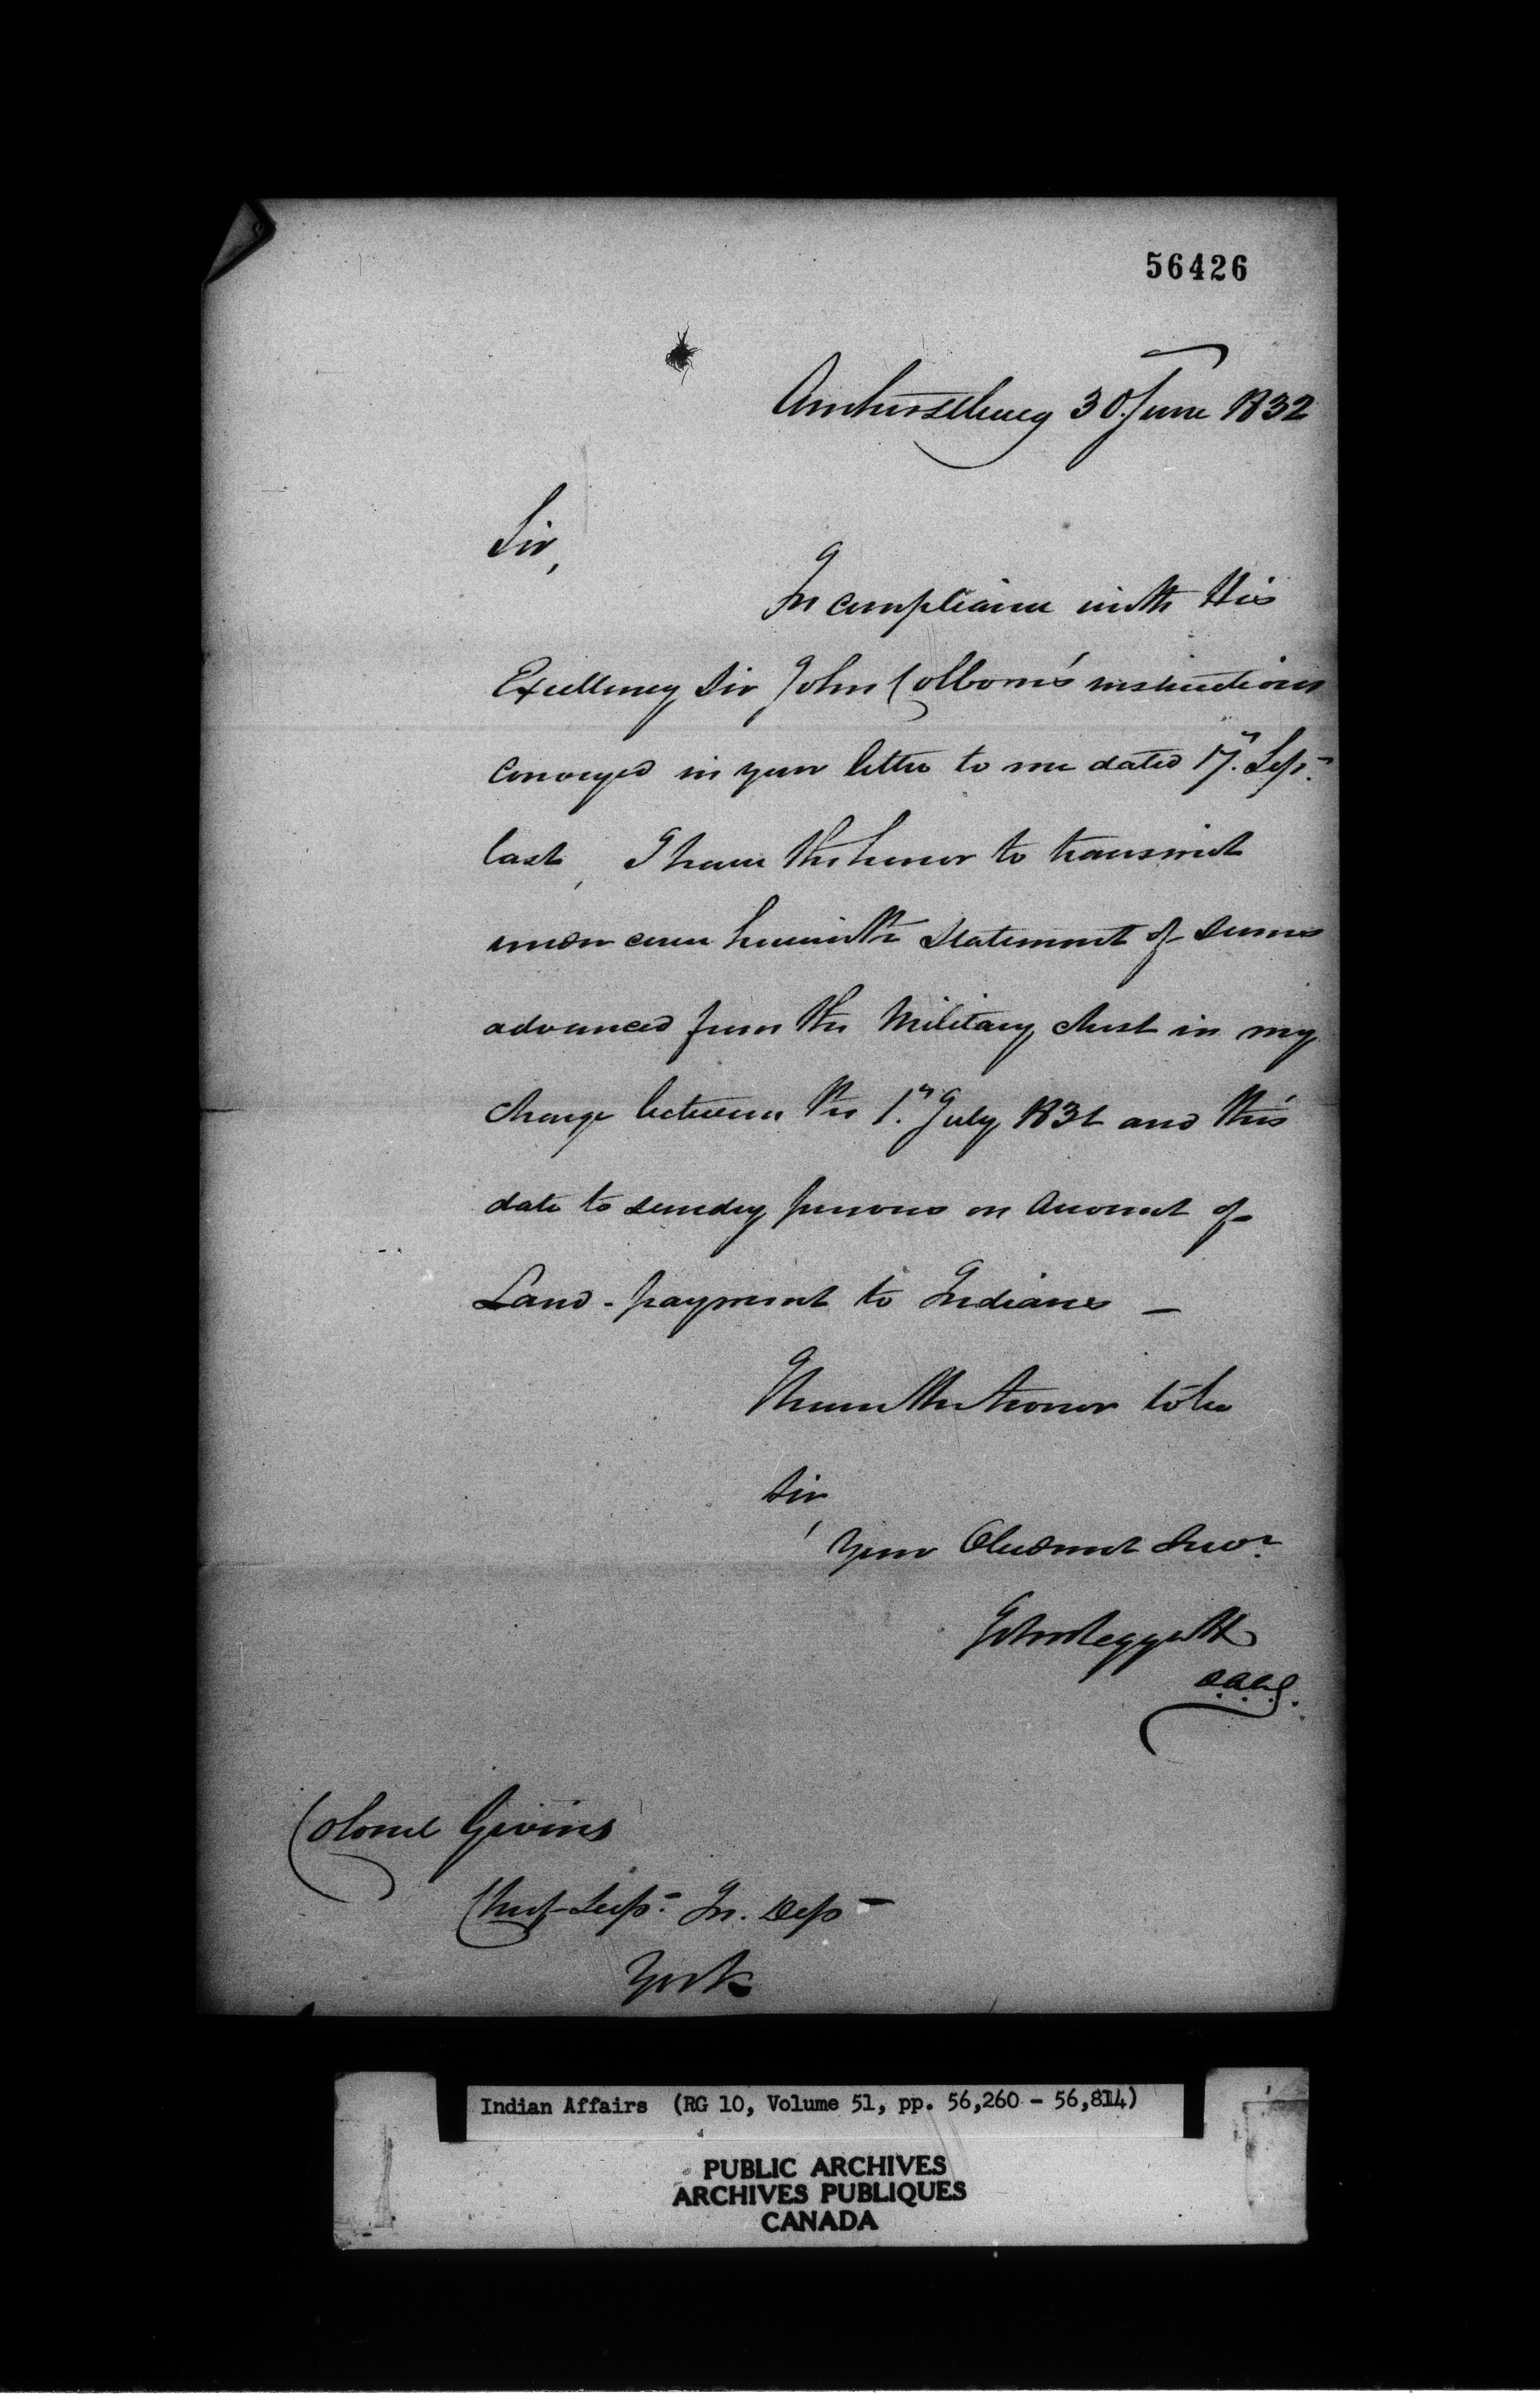 56426
Amherstburg 30 June 1832
Sir,
In compliance with His
Excellency Sir John Colborne's instructions
conveyed in your letter to me dated 17th Sept
last, I have the honor to transmit
under cover herewith Statement of Sums
advanced from the Military Chest in my
charge between the 1st July 1831 and this
date to sundry persons on Account of
Land-payment to Indians —
I have the honor to be
Sir,
Your Obedient Servt
John Leggatt
D.A.C.G.
Colonel Givins
Chief Supt In. Dept
York
Indian Affairs (RG 10, Volume 51, pp. 56,260 - 56,814)
PUBLIC ARCHIVES
ARCHIVES PUBLIQUES
CANADA